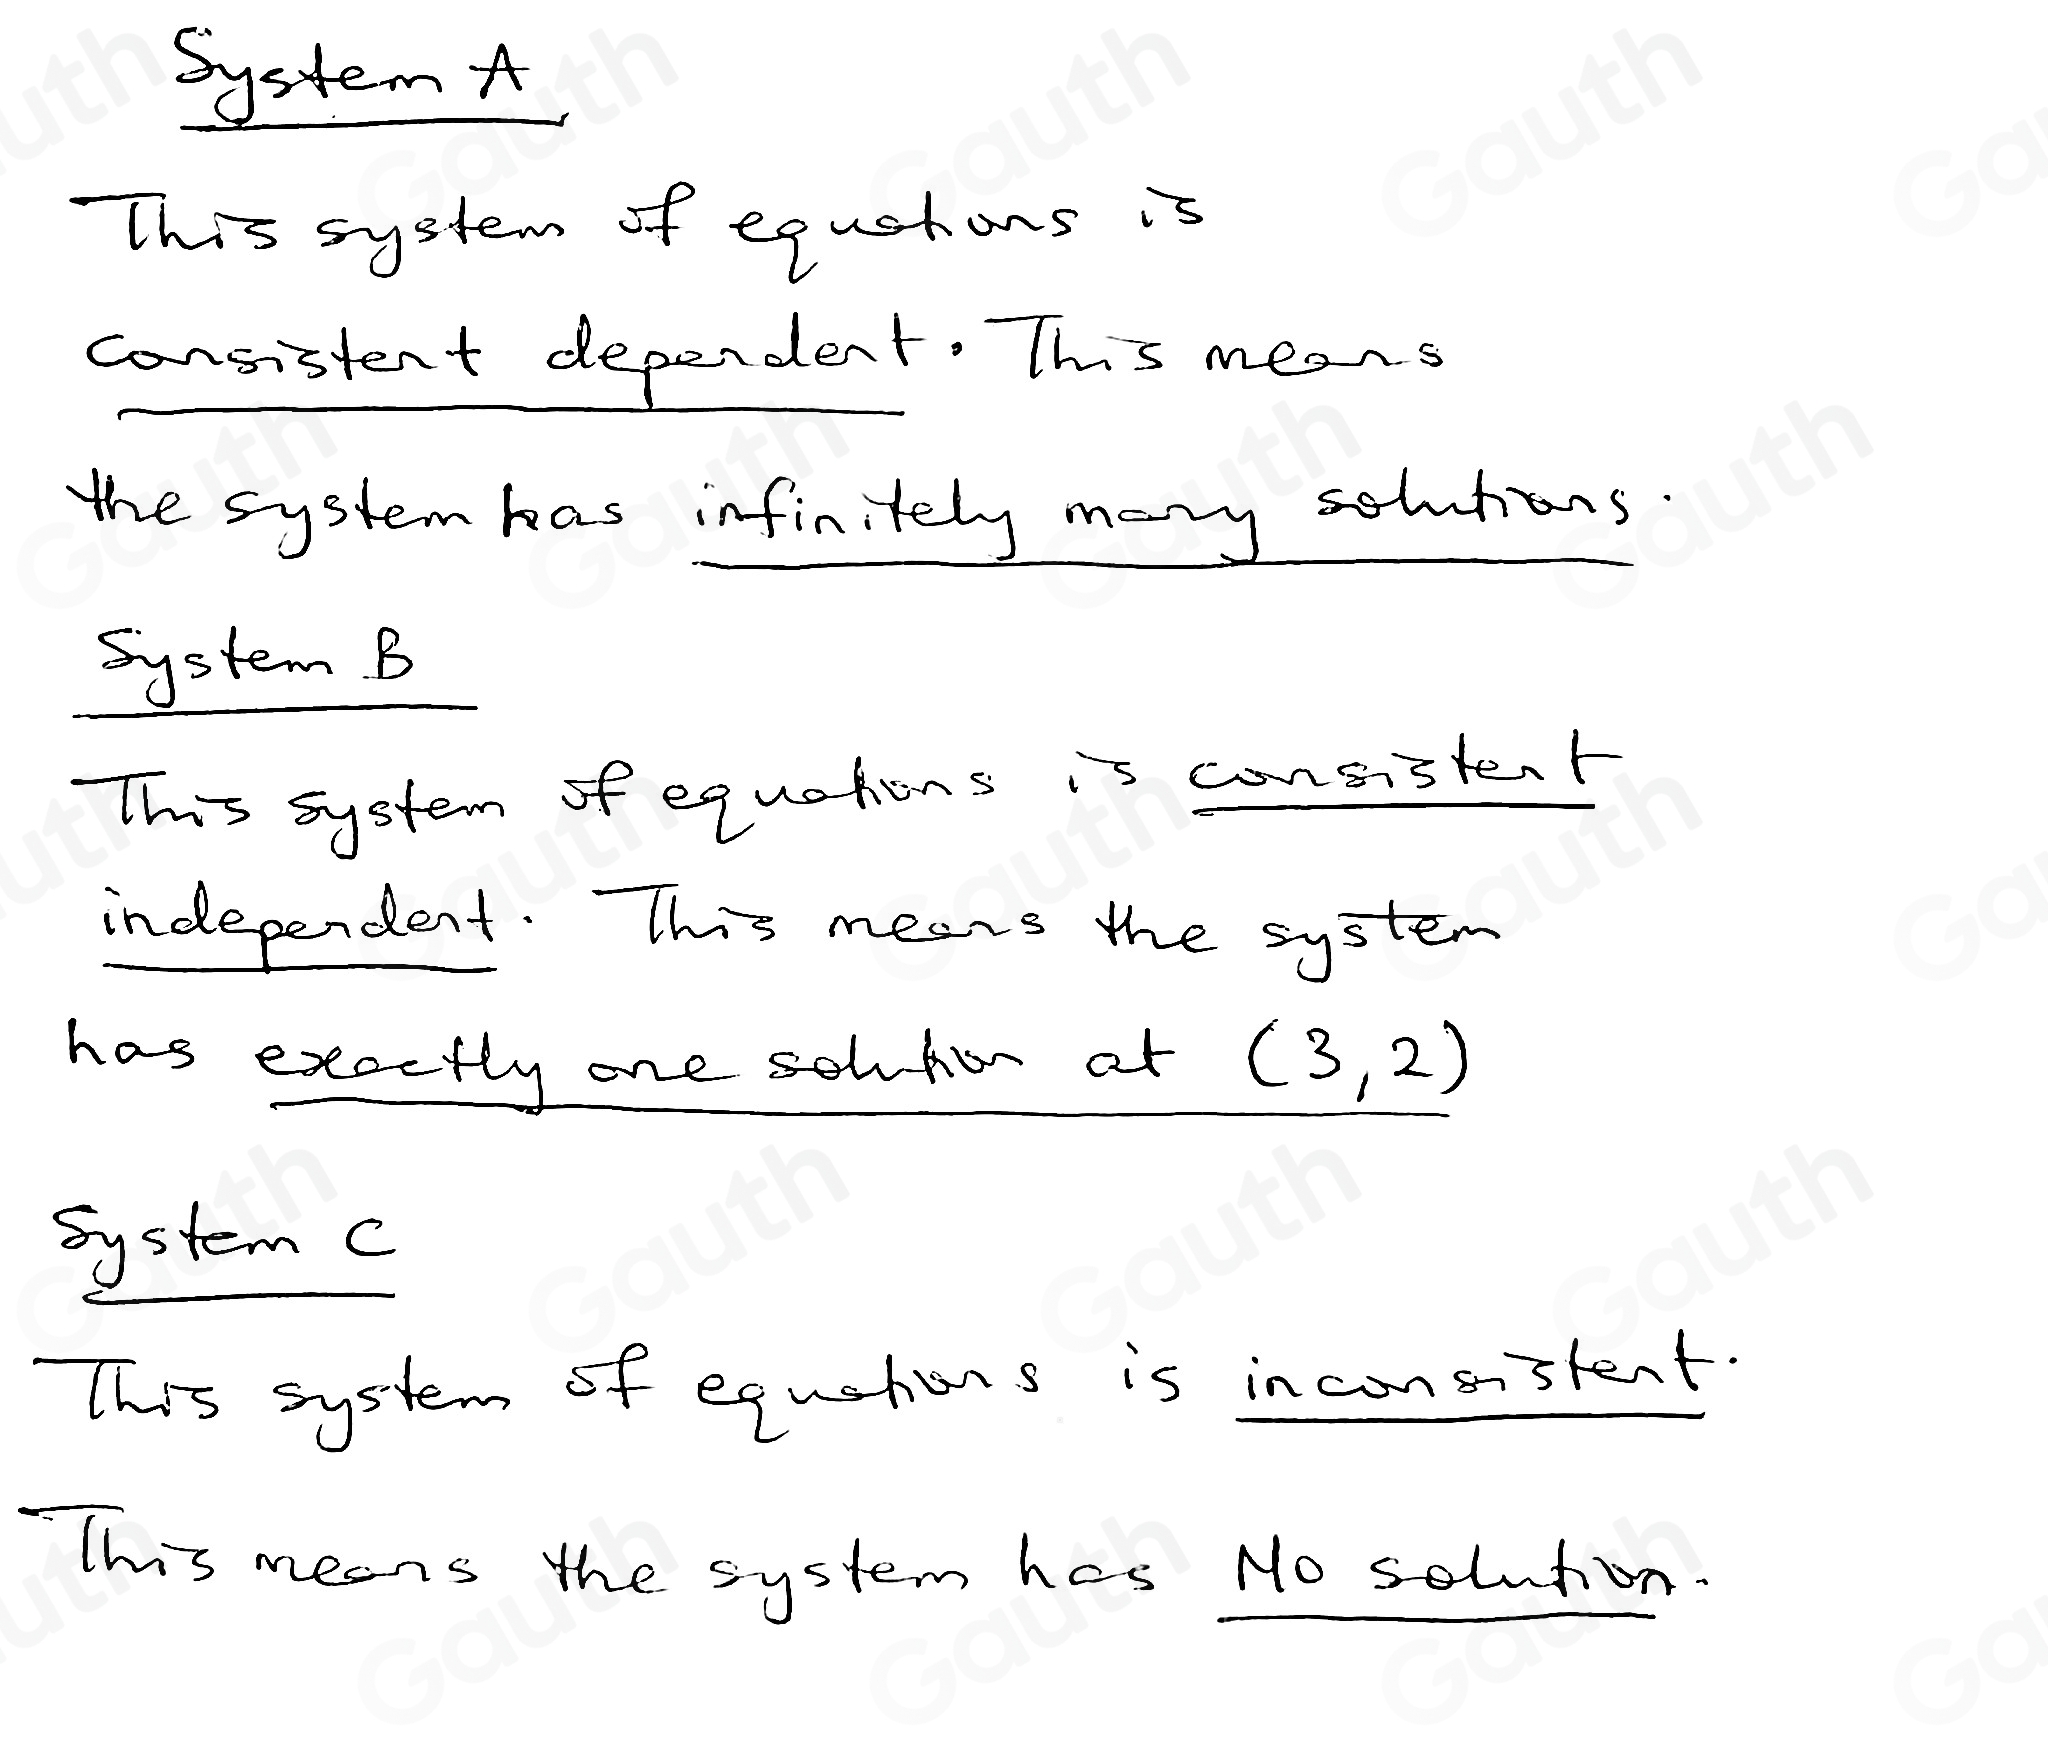 System A
This system of equations is
consistent dependent. This means
the system has infinitely many solutions.
System B
This system of equations is consistent
independent. This means the system
has exactly one solution at (3,2)
System C
This system of equations is inconsistent.
This means the system has No solution.